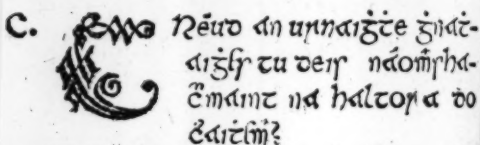 C. Créud an urnaiġṫe ġnáṫ-
aiġeas tu deis náoṁsha-
c̃maint na haltora do
ċaiṫeaṁ?